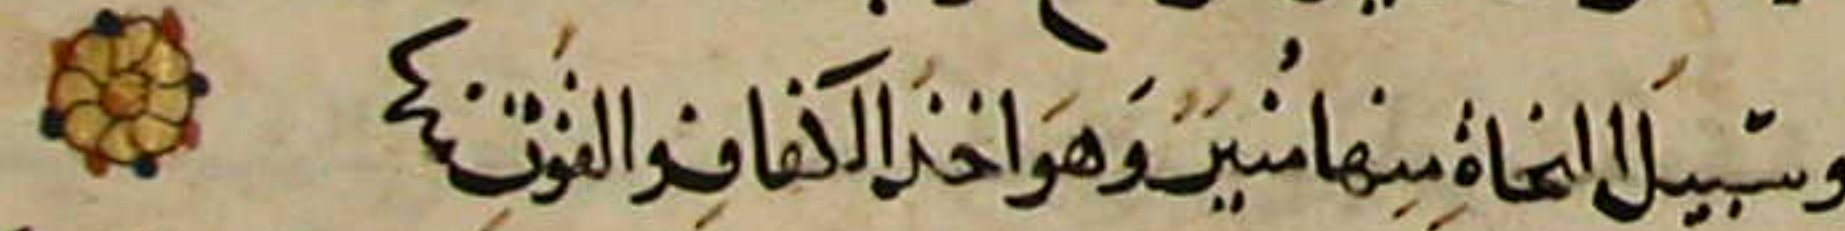 وسبيل النجاة منها منير وهو اخذ الكفاف والقوت